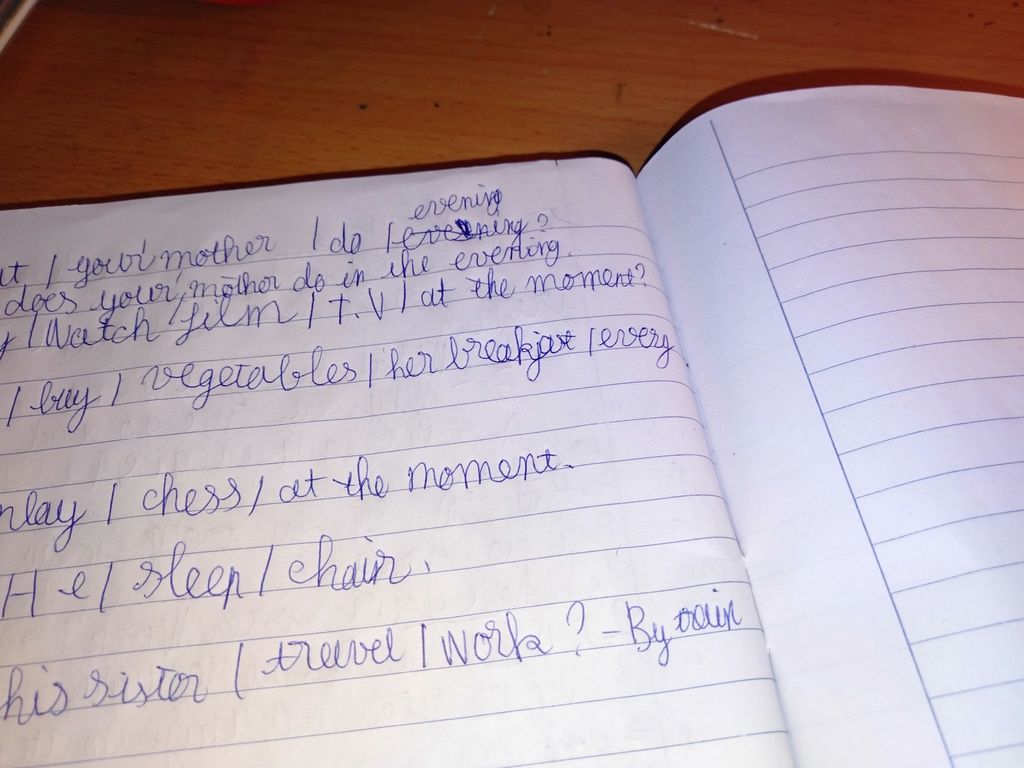 evening
t / your mother / do / evening?
does your mother do in the evening.
y / Watch film / T.V / at the moment?
/ buy / vegetables / her breakfast / every
play / chess / at the moment.
He / sleep / chair.
his sister / travel / work ? - By train